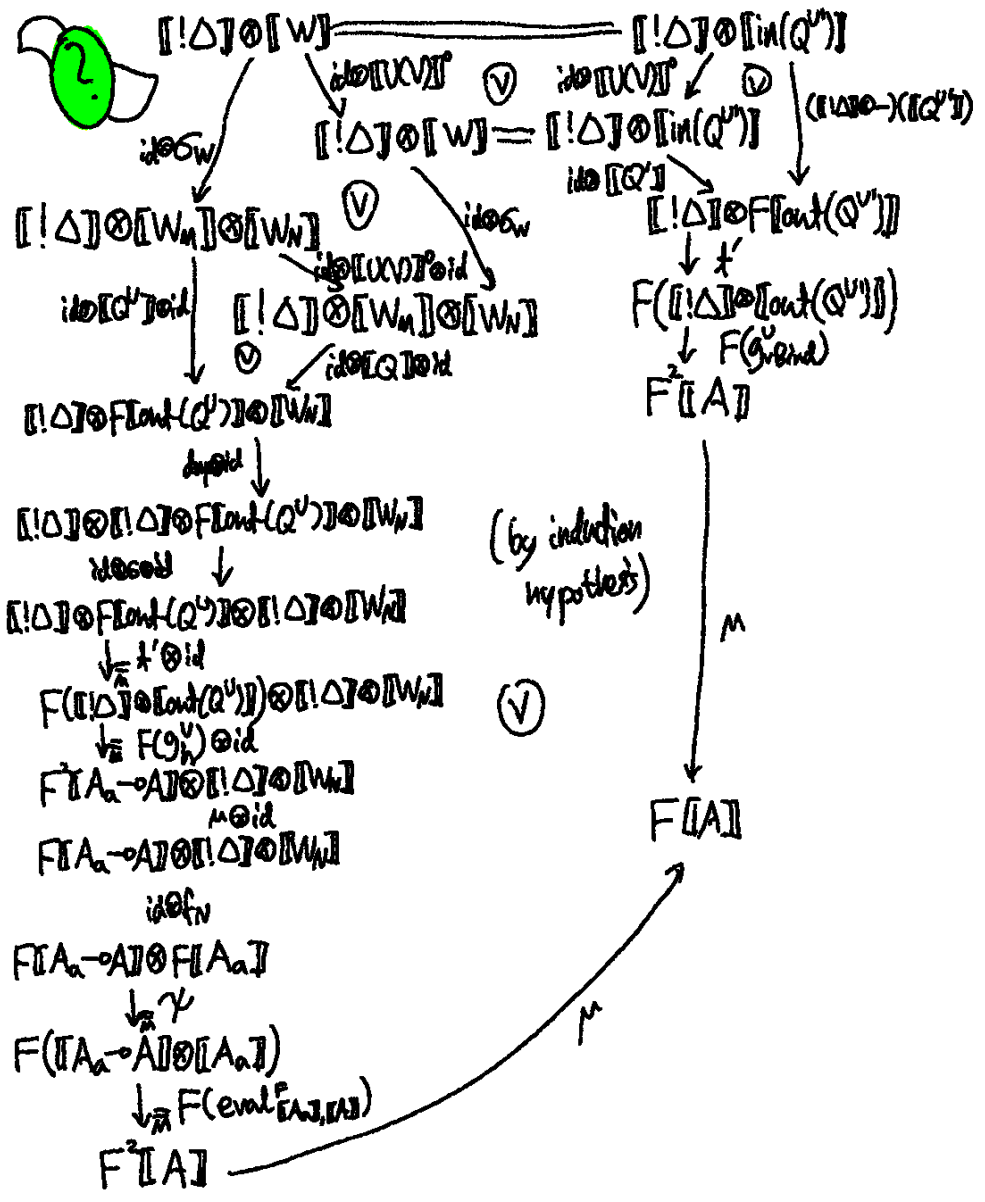 ?
⟦!Δ⟧⊗⟦W⟧ ⟦!Δ⟧⊗⟦in(Q^U')⟧
id⊗⟦U(V)⟧° (V) id⊗⟦U(V)⟧° (V)
(⟦!Δ⟧⊗-)(⟦Q^U'⟧)
id⊗σ_W ⟦!Δ⟧⊗⟦W⟧ = ⟦!Δ⟧⊗⟦in(Q^U')⟧
id⊗⟦Q'⟧
(V) id⊗σ_W
⟦!Δ⟧⊗⟦W_M⟧⊗⟦W_N⟧ ⟦!Δ⟧⊗F⟦out(Q^U')⟧
id⊗⟦U(V)⟧°⊗id t'
id⊗⟦Q^U⟧⊗id ⟦!Δ⟧⊗⟦W_M⟧⊗⟦W_N⟧ F(⟦!Δ⟧⊗⟦out(Q^U')⟧)
(V) id⊗⟦Q⟧⊗id
F²⟦A⟧
⟦!Δ⟧⊗F⟦out(Q^U)⟧⊗⟦W_N⟧
⟦!Δ⟧⊗⟦!Δ⟧⊗F⟦out(Q^U)⟧⊗⟦W_N⟧
(by induction
hypothesis)
⟦!Δ⟧⊗F⟦out(Q^U)⟧⊗⟦!Δ⟧⊗⟦W_N⟧
μ
t'⊗id
F(⟦!Δ⟧⊗⟦out(Q^U)⟧)⊗⟦!Δ⟧⊗⟦W_N⟧ (V)
F²⟦A_a⊸A⟧⊗⟦!Δ⟧⊗⟦W_N⟧
μ⊗id
F⟦A⟧
F⟦A_a⊸A⟧⊗⟦!Δ⟧⊗⟦W_N⟧
id⊗f_N
F⟦A_a⊸A⟧⊗F⟦A_a⟧
ψ
μ
F(⟦A_a⊸A⟧⊗⟦A_a⟧)
F(eval^F_⟦A_a⟧,⟦A⟧)
F²⟦A⟧